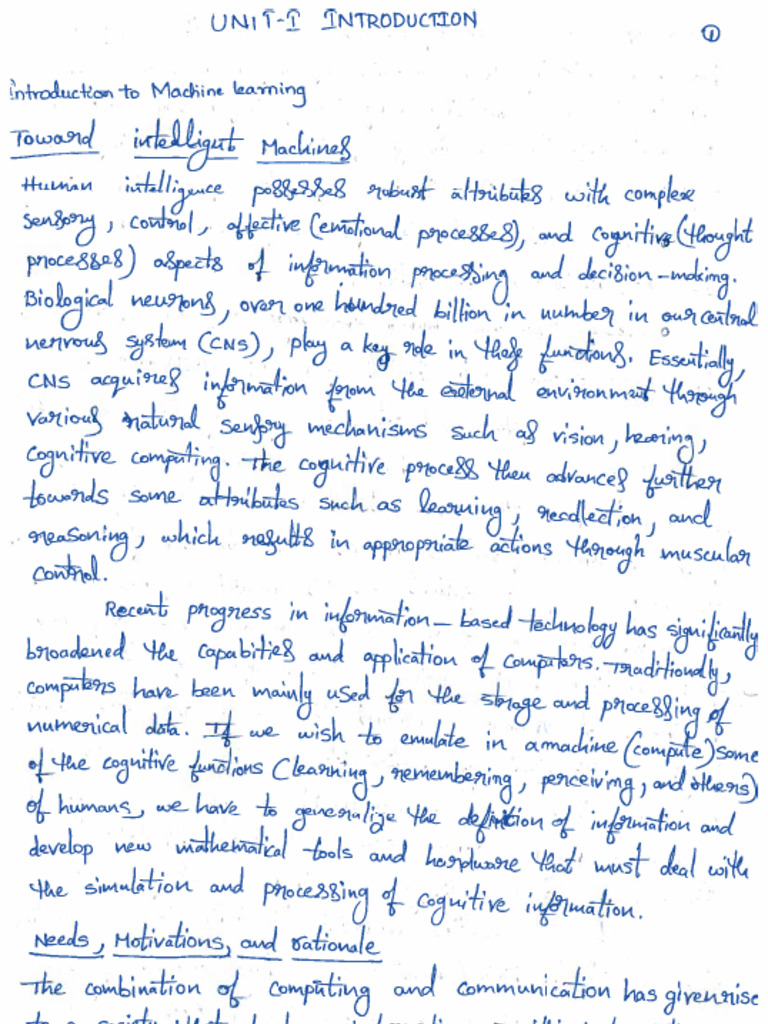 UNIT-I INTRODUCTION
1
Introduction to Machine learning
Toward intelligent Machines
Human intelligence possesses robust attributes with complex
sensory, control, affective (emotional processes), and cognitive (thought
processes) aspects of information processing and decision-making.
Biological neurons, over one hundred billion in number in our central
nervous system (CNS), play a key role in these functions. Essentially,
CNS acquires information from the external environment through
various natural sensory mechanisms such as vision, hearing,
cognitive computing. The cognitive process then advances further
towards some attributes such as learning, recollection, and
reasoning, which results in appropriate actions through muscular
control.
Recent progress in information-based technology has significantly
broadened the capabities and application of computers. Traditionally,
computers have been mainly used for the storage and processing of
numerical data. If we wish to emulate in a machine (compute) some
of the cognitive functions (learning, remembering, perceiving, and others)
of humans, we have to generalize the definition of information and
develop new mathematical tools and hardware that must deal with
the simulation and processing of cognitive information.
Needs, Motivations, and rationale
The combination of computing and communication has given rise
to a society that